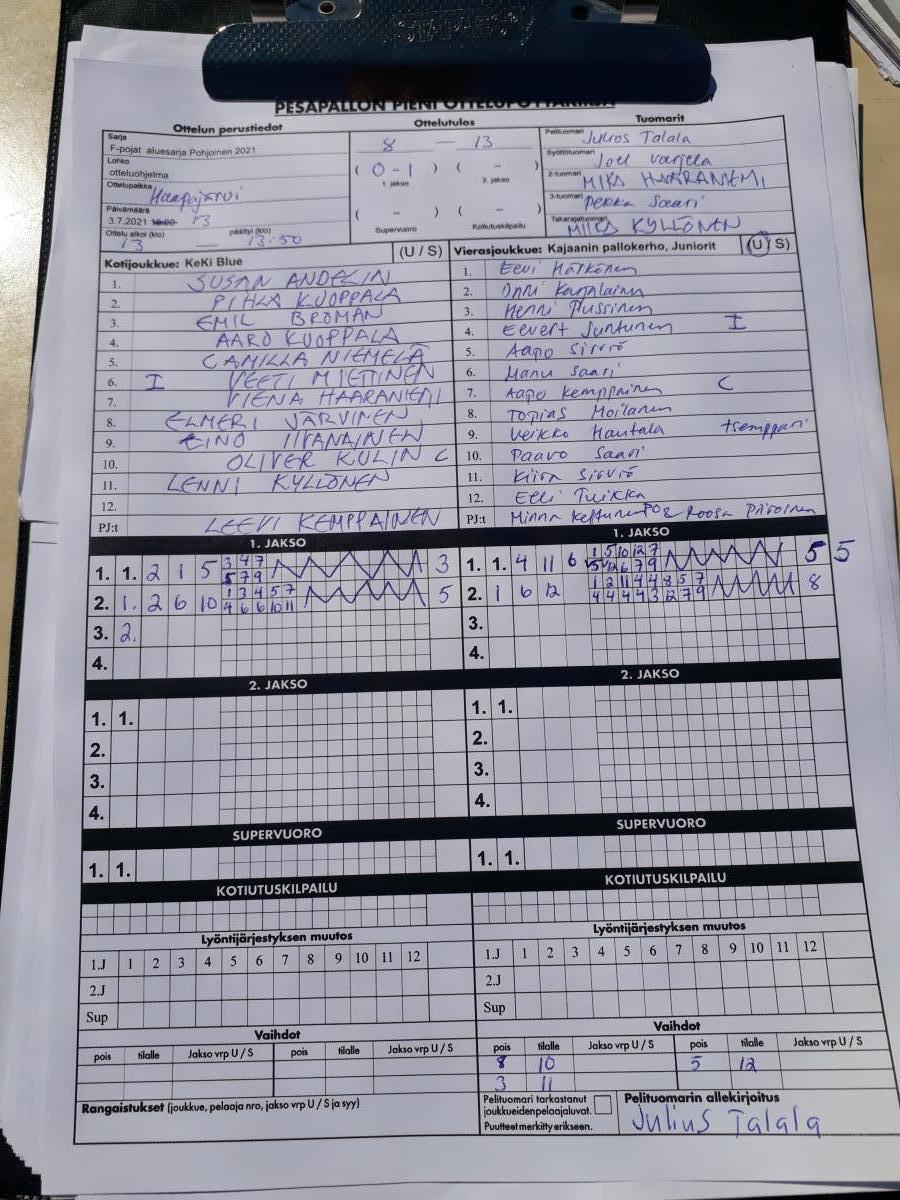 PESÄPALLON PIENI OTTELUPÖYTÄKIRJA
Ottelun perustiedot
Sarja
F-pojat aluesarja Pohjoinen 2021
Lohko
otteluohjelma
Ottelupaikka Haapajärvi
Päivämäärä
3.7.2021 18:00 13
Ottelu alkoi (klo) päättyi (klo)
13 — 13:50
Ottelutulos
8 — 13
( 0-1 ) ( - )
1. jakso 2. jakso
( - ) ( - )
Supervuoro Kotiutuskilpailu
Tuomarit
Pelituomari Julius Talala
Syöttötuomari Joel Varjela
2-tuomari MIKA HAARANIEMI
3-tuomari Pekka Saari
Takarajatuomari MIIKA KYLLÖNEN
Kotijoukkue: KeKi Blue (U / S)
1. SUSAN ANDELIN
2. PIHLA KUOPPALA
3. EMIL BROMAN
4. AARO KUOPPALA
5. CAMILLA NIEMELÄ
6. I VEETI MIETTINEN
7. VIENA HAARANIEMI
8. ELMERI JÄRVINEN
9. EINO IIVANAINEN
10. OLIVER KULIN C
11. LENNI KYLLÖNEN
12.
PJ:t LEEVI KEMPPAINEN
Vierasjoukkue: Kajaanin pallokerho, Juniorit (U / S)
1. Eevi Härkönen
2. Onni Karjalainen
3. Henni Pussinen
4. Eevert Juntunen I
5. Aapo Sirviö
6. Manu Saari
7. Aapo Kemppainen C
8. Topias Moilanen
9. Veikko Hautala tsemppari
10. Paavo Saari
11. Kiira Sirviö
12. Elli Tuikka
PJ:t Minna Kettunen & Roosa Piirainen
1. JAKSO
1. 1. 2 1 5 3 4 7 3
5 7 9
2. 1. 2 6 10 1 3 4 5 7 5
4 6 6 10 11
3. 2.
4.
1. JAKSO
1. 1. 4 11 6 1 5 10 12 7 5 5
5 12 6 7 9
2. 1 6 12 1 2 11 4 4 8 5 7 8
4 4 4 4 3 12 7 9
3.
4.
2. JAKSO
1. 1.
2.
3.
4.
2. JAKSO
1. 1.
2.
3.
4.
SUPERVUORO
1. 1.
SUPERVUORO
1. 1.
KOTIUTUSKILPAILU
KOTIUTUSKILPAILU
Lyöntijärjestyksen muutos
1.J 1 2 3 4 5 6 7 8 9 10 11 12
2.J
Sup
Lyöntijärjestyksen muutos
1.J 1 2 3 4 5 6 7 8 9 10 11 12
2.J
Sup
Vaihdot
pois tilalle Jakso vrp U / S pois tilalle Jakso vrp U / S
Vaihdot
pois tilalle Jakso vrp U / S pois tilalle Jakso vrp U / S
8 10 5 12
3 11
Rangaistukset (joukkue, pelaaja nro, jakso vrp U / S ja syy)
Pelituomari tarkastanut
joukkueiden pelaajaluvat.
Puutteet merkitty erikseen.
Pelituomarin allekirjoitus
Julius Talala